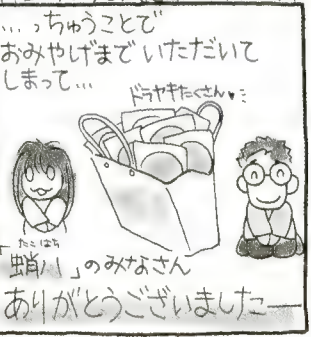 …っちゅうことで
おみやげまでいただいて
しまって…
ドラヤキたくさん♥
たこはち
「蛸八」のみなさん
ありがとうございましたー